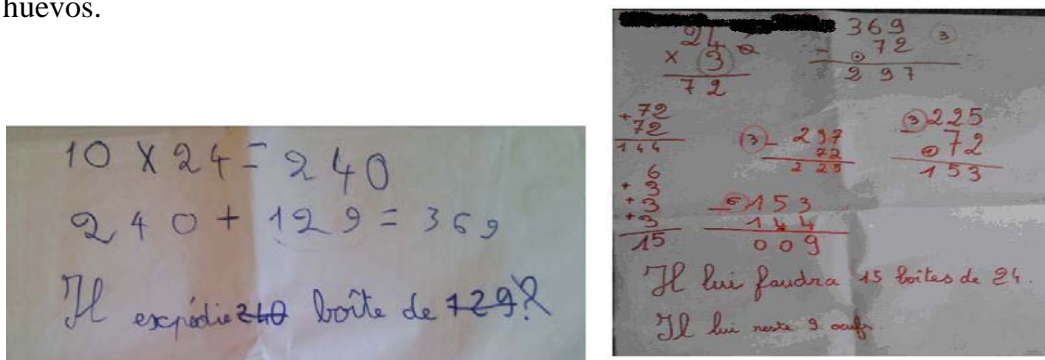 huevos.
10 X 24 = 240
240 + 129 = 369
Il expédie 240 boîte de 129?
24
x 3
72
369 3
- 72
297
+ 72
72
144
3 - 297
72
225
3 225
- 72
153
6
+ 3
+ 3
+ 3
15
6 153
- 144
009
Il lui faudra 15 boîtes de 24.
Il lui reste 9 oeufs.